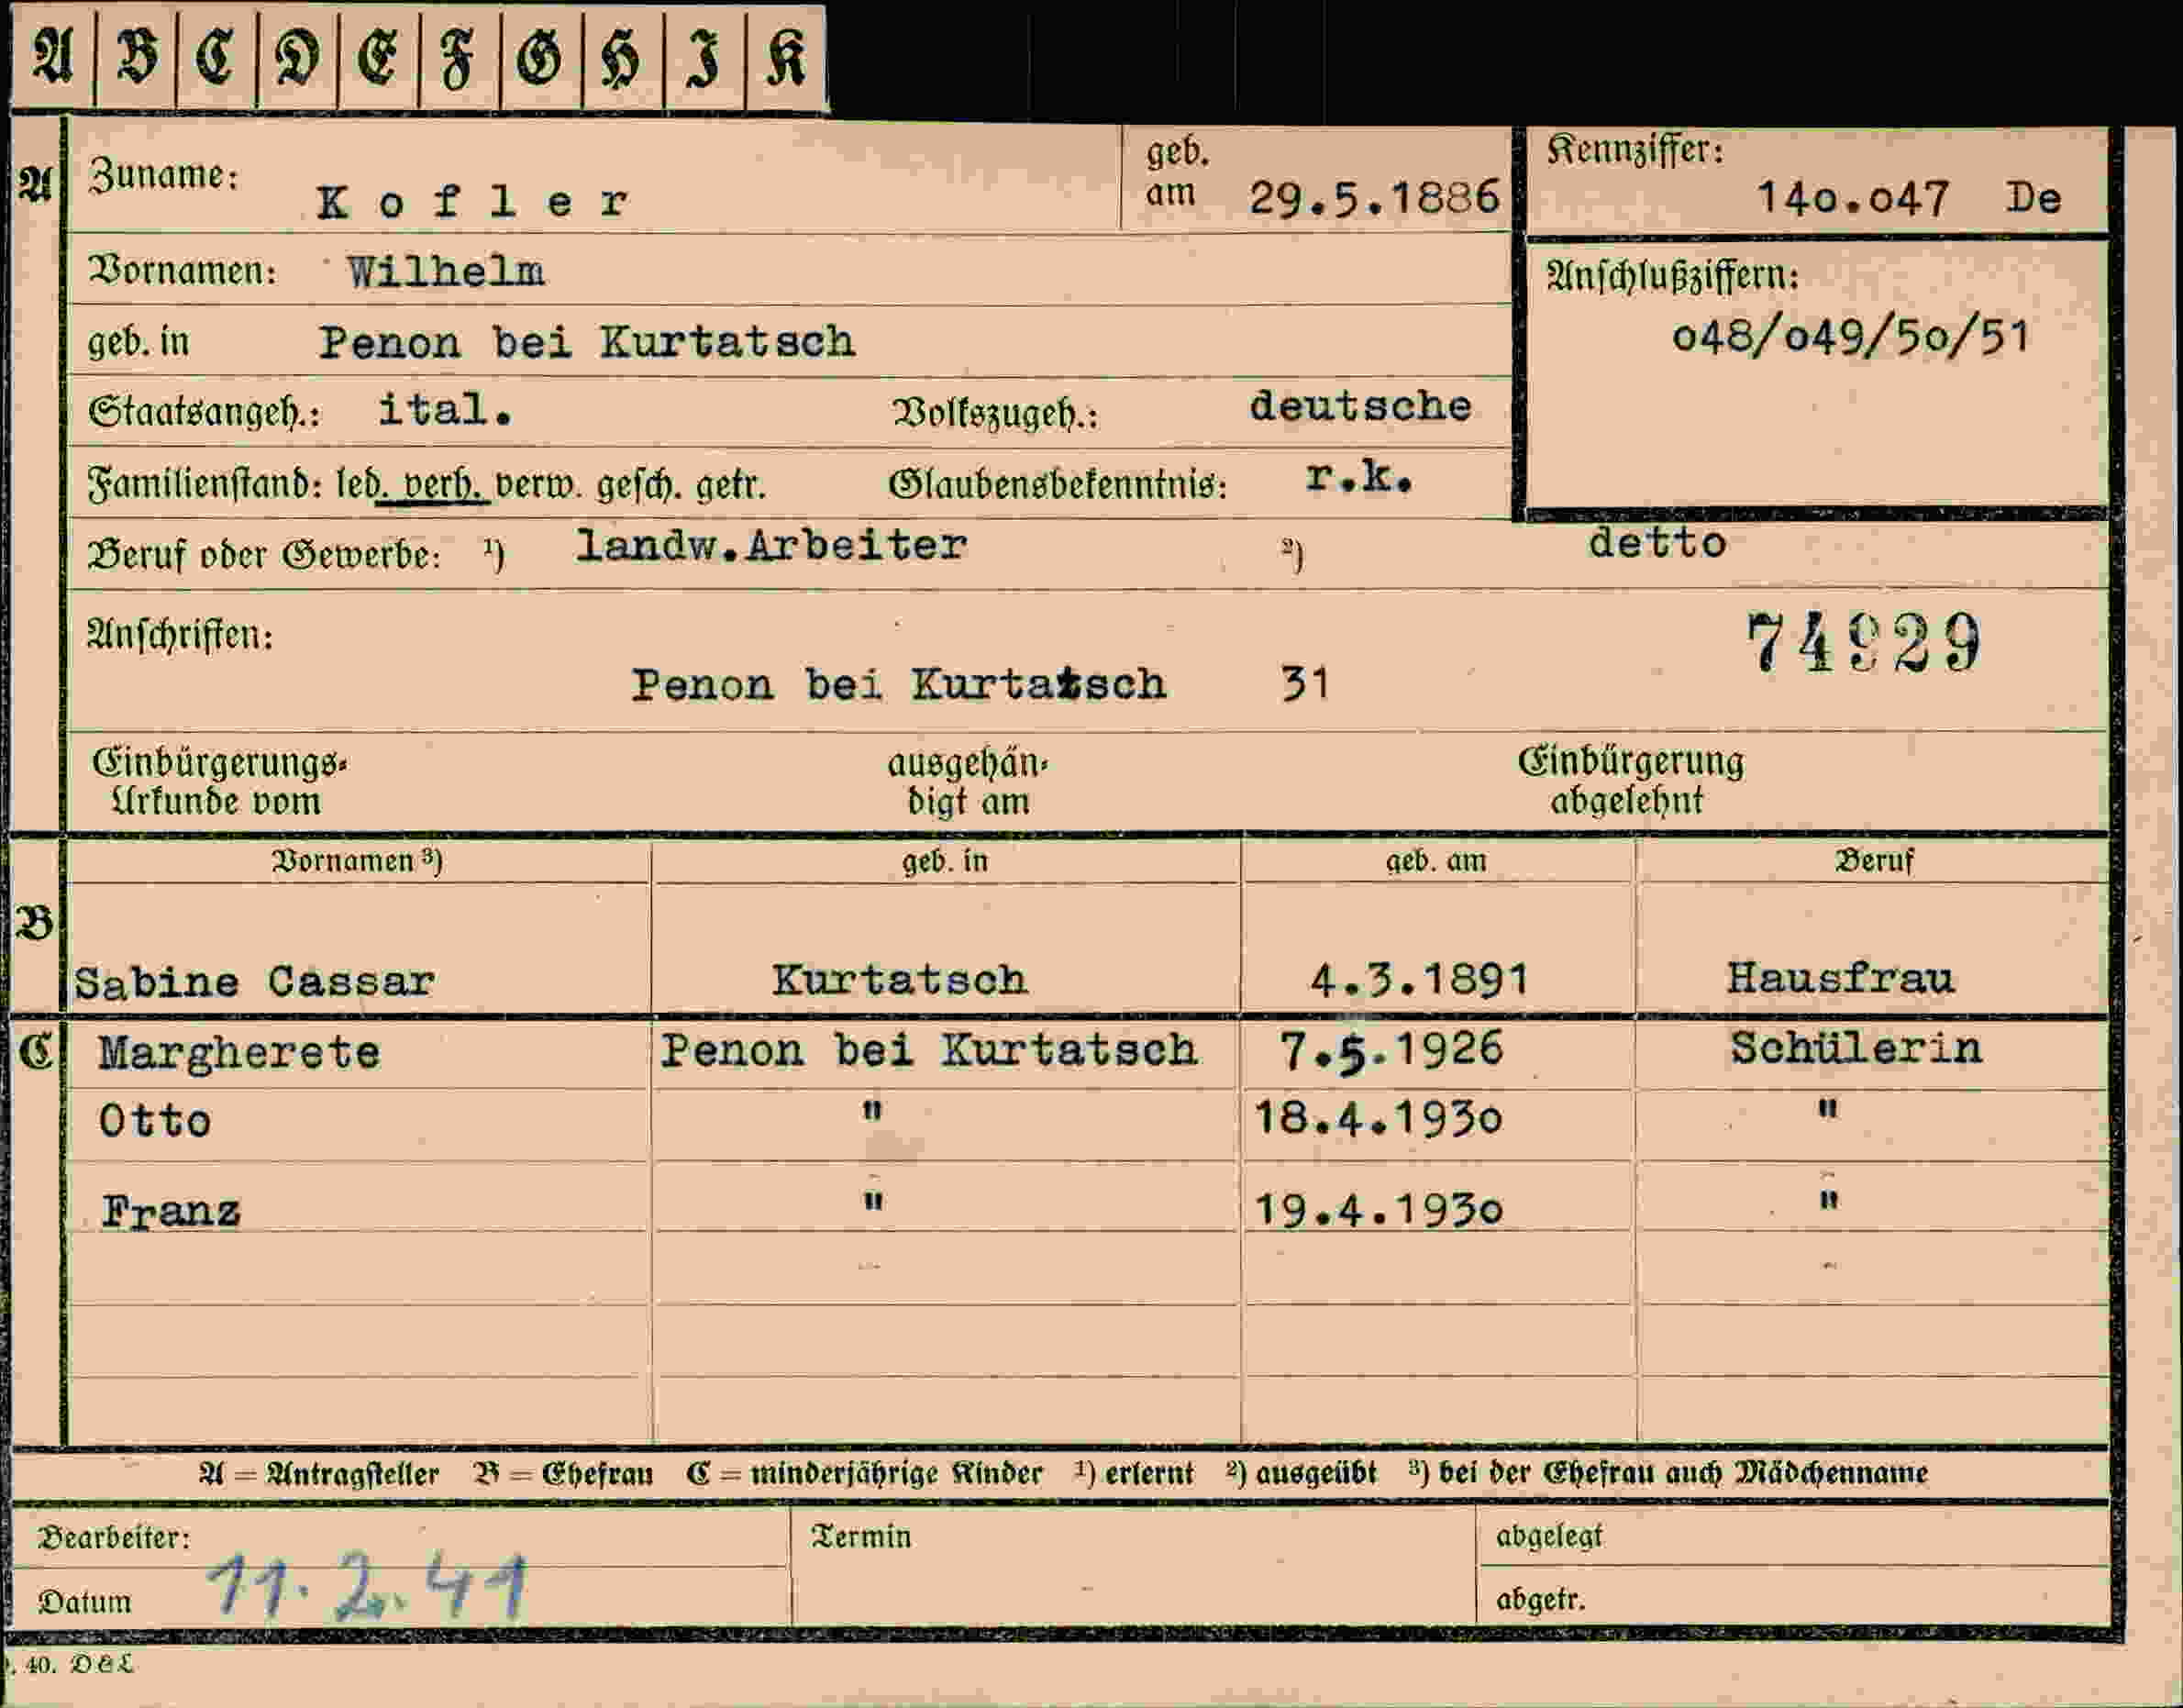 A B C D E F G H I K
A Zuname: Kofler geb. am 29.5.1886 Kennziffer: 14o.o47 De
Vornamen: Wilhelm
Anschlußziffern:
geb. in Penon bei Kurtatsch o48/o49/5o/51
Staatsangeh.: ital. Volkszugeh.: deutsche
Familienstand: led. verh. verw. gesch. getr. Glaubensbekenntnis: r.k.
Beruf oder Gewerbe: ¹) landw.Arbeiter ²) detto
Anschriften: 74929
Penon bei Kurtatsch 31
Einbürgerungs- ausgehän- Einbürgerung
Urkunde vom digt am abgelehnt
Vornamen ³) geb. in geb. am Beruf
B
Sabine Cassar Kurtatsch 4.3.1891 Hausfrau
C Margherete Penon bei Kurtatsch 7.5.1926 Schülerin
Otto " 18.4.193o "
Franz " 19.4.193o "
A = Antragsteller B = Ehefrau C = minderjährige Kinder ¹) erlernt ²) ausgeübt ³) bei der Ehefrau auch Mädchenname
Bearbeiter: Termin abgelegt
Datum 11.2.41 abgetr.
. 40. D & L